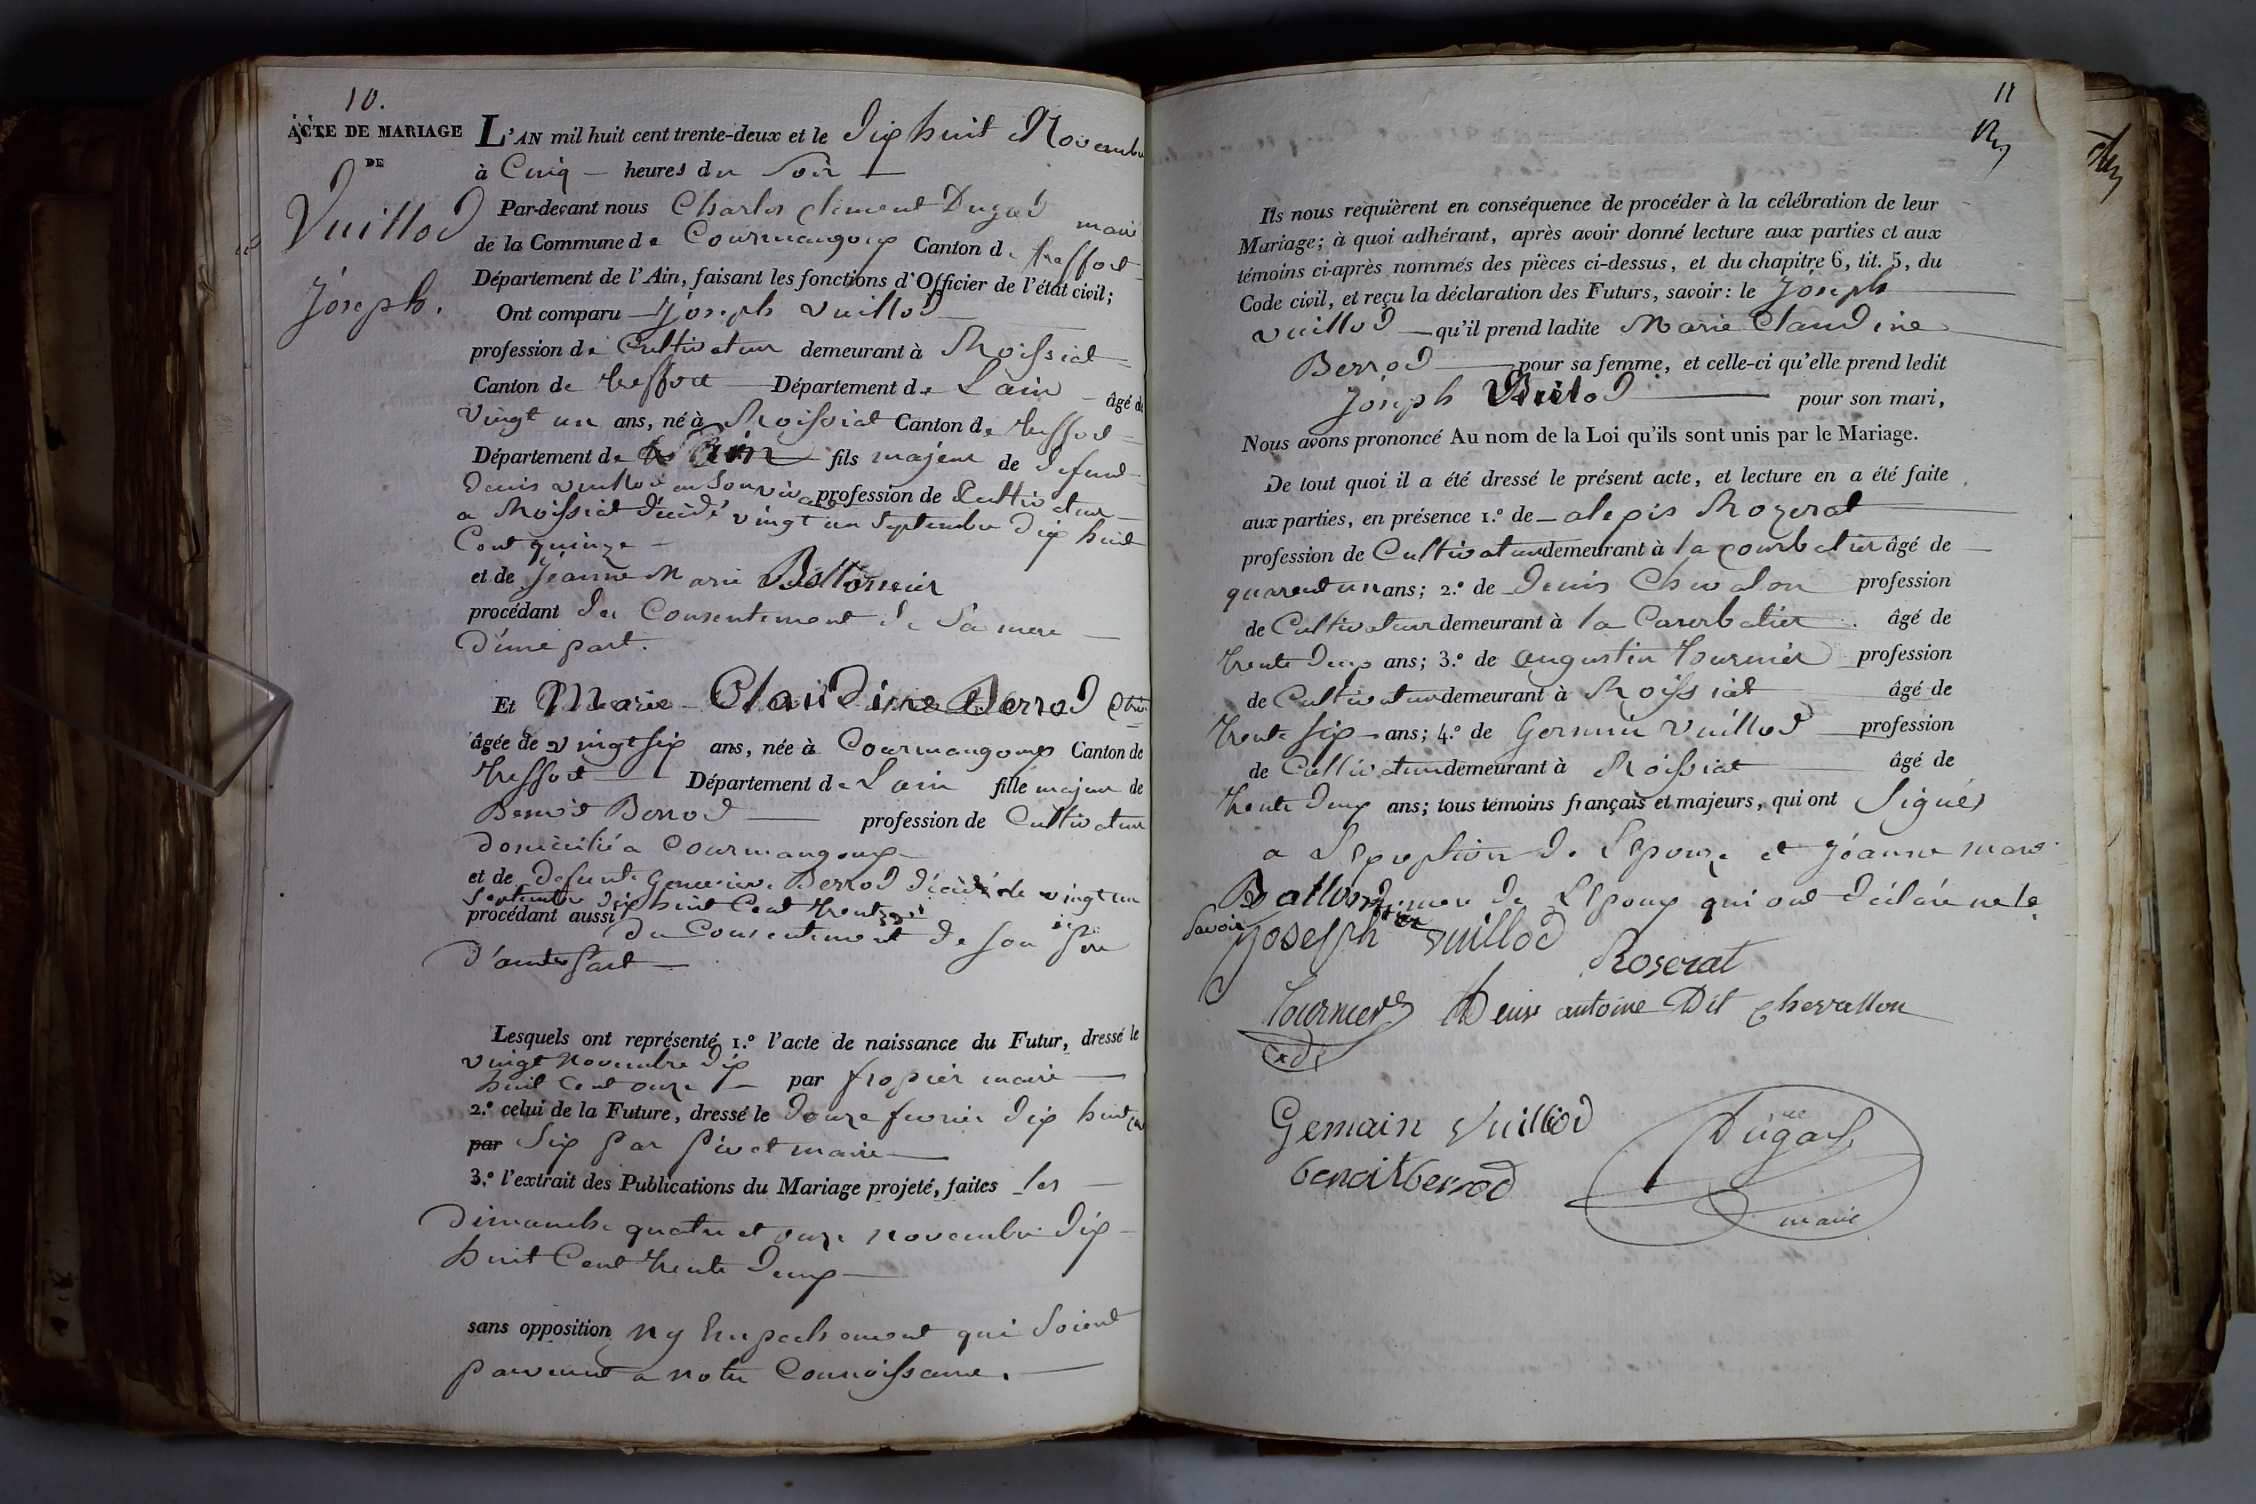 10.
ACTE DE MARIAGE
DE
Vuillod
Joseph.
L'AN mil huit cent trente-deux et le dix huit Novembre
à Cinq heures du Soir
Par-devant nous Charles Clément Dugad maire
de la Commune de Courmangoux Canton de treffort
Département de l'Ain, faisant les fonctions d'Officier de l'état civil;
Ont comparu Joseph Vuillod
profession de Cultivateur demeurant à Moissiat
Canton de treffort Département de L'ain âgé de
vingt un ans, né à Moissiat Canton de treffort
Département de L'ain fils majeur de defunt
denis vuillod en Son vivant profession de Cultivateur
a Moissiat décédé vingt un Septembre dix huit
Cent quinze
et de Jeanne Marie
procédant du Consentement de Sa mere
D'une part.
Et Marie Claudine Berrod
âgée de vingt six ans, née à Courmangoux Canton de
treffort Département de L'ain fille majeur de
Benoit Berrod profession de Cultivateur
domicilié a Courmangoux
et de defunte Genevieve Berrod décédé le vingt un
Septembre dix huit Cent trente
procédant aussi du Consentement de Son Pere
d'autre Part
Lesquels ont représenté 1.º l'acte de naissance du Futur, dressé le
vingt novembre dix
huit Cent onze par fropier maire
2.º celui de la Future, dressé le Douze fevrier dix huit cent
par Six par Pivet maire
3.º l'extrait des Publications du Mariage projeté, faites les
Dimanche quatre et onze novembre dix
huit Cent trente deux
sans opposition ny Empechement qui Soient
parvenut a notre Connoissance.
11
Ils nous requièrent en conséquence de procéder à la célébration de leur
Mariage; à quoi adhérant, après avoir donné lecture aux parties et aux
témoins ci-après nommés des pièces ci-dessus, et du chapitre 6, tit. 5, du
Code civil, et reçu la déclaration des Futurs, savoir: le Joseph
vuillod qu'il prend ladite Marie Claudine
Berrod pour sa femme, et celle-ci qu'elle prend ledit
Joseph Vuillod pour son mari,
Nous avons prononcé Au nom de la Loi qu'ils sont unis par le Mariage.
De tout quoi il a été dressé le présent acte, et lecture en a été faite
aux parties, en présence 1.º de alexis Rozerat
profession de Cultivateur demeurant à la courbatier âgé de
quarent un ans; 2.º de Denis Chevalon profession
de Cultivateur demeurant à la Courbatier âgé de
trente deux ans; 3.º de augustin tournier profession
de Cultivateur demeurant à Moissiat âgé de
trente six ans; 4.º de Germin Vuillod profession
de Cultivateur demeurant à Moissiat âgé de
trente deux ans; tous témoins français et majeurs, qui ont Signés
a L'exeption de L'epouse et Jeanne marie
mere de L'Epoux qui ont déclaré ne le
Savoir
Joseph vuillod
Roserat
Tournier Denis antoine Dit Chevallon
Gemain Vuillod
benoit berrod
Dugad
maire